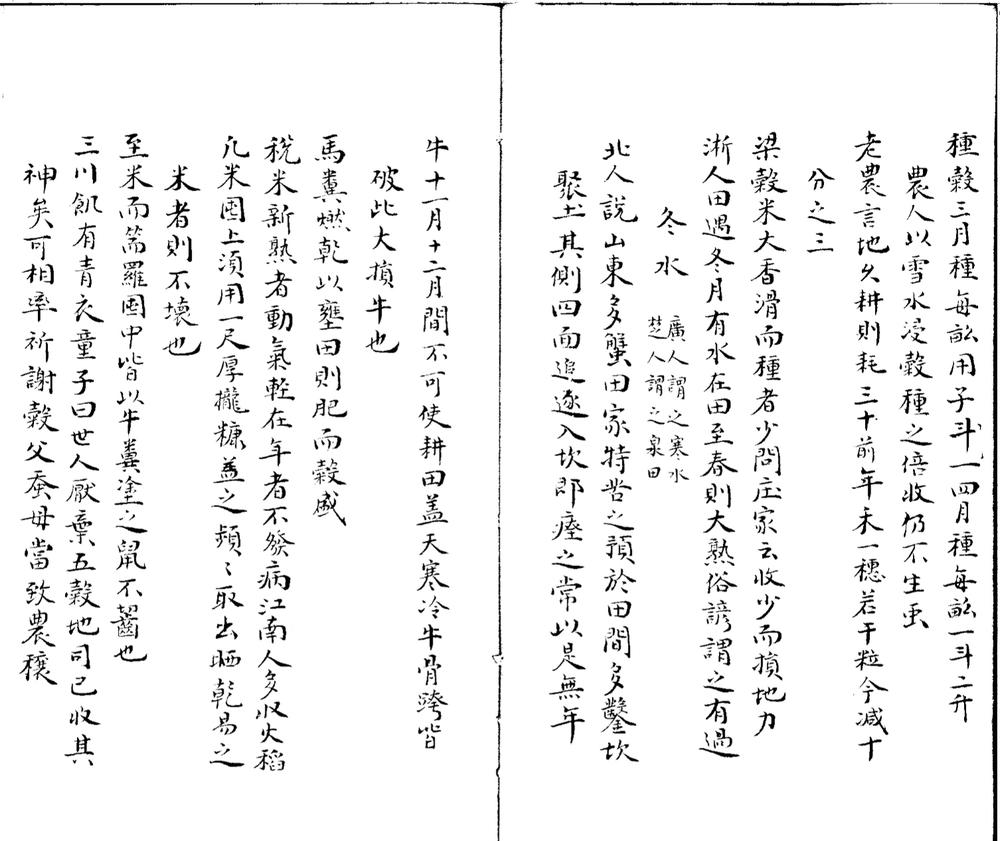 種穀三月種每畝用子斗一四月種每畝一斗二升
農人以雪水浸穀種之倍收仍不生虫
老農言地久耕則耗三十前年禾一穗若干粒今减十
分之三
梁穀米大香滑而種者少問庄家云收少而損地力
淅人田遇冬月有水在田至春則大熟俗諺謂之有過
冬水
廣人謂之寒水
楚人謂之泉田
北人說山東多蟹田家特苦之預於田間多鑿坎
聚土其側四面追逐入坎即瘞之常以是無年
牛十一月十二月間不可使耕田盖天寒冷牛骨跨皆
破此大損牛也
馬糞燃乾以壅田則肥而穀盛
稅米新熟者動氣軽在年者不發病江南人多收火稻
凢米囤上湏用一尺厚攏糠盖之頻〻取出晒乾易之
米者則不壞也
至米而笟羅囤中皆以牛糞塗之鼠不齧也
三川飢有青衣童子曰世人厭棄五穀地司已收其
神矣可相率祈謝穀父蚕母當致農穰